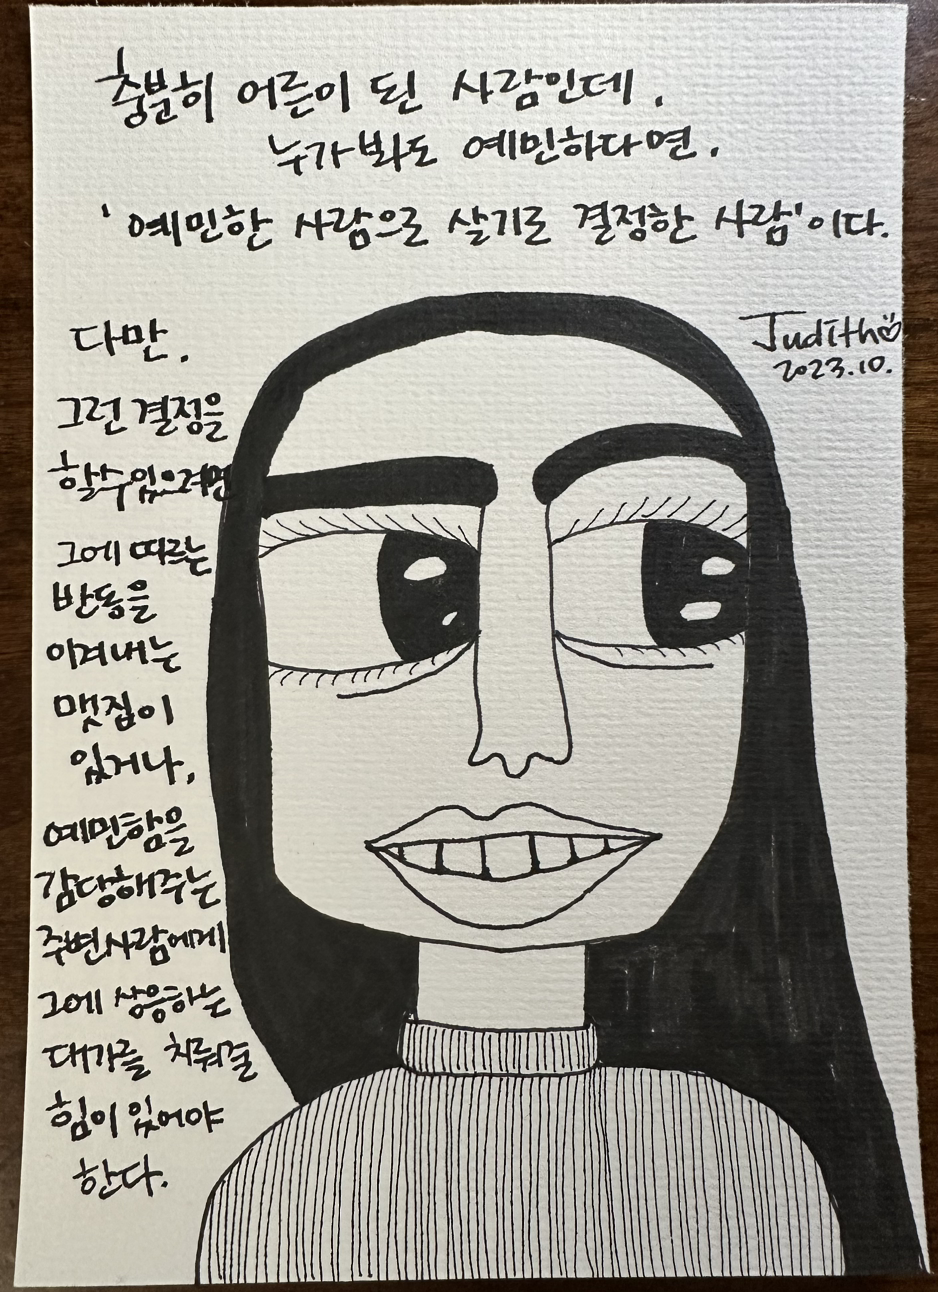 충분히 어른이 된 사람인데,
누가봐도 예민하다면,
'예민한 사람으로 살기로 결정한 사람'이다.
Judith
2023.10.
다만,
그런 결정을
할수있으려면
그에 따르는
반동을
이겨내는
맷집이
있거나,
예민함을
감당해주는
주변사람에게
그에 상응하는
대가를 치뤄줄
힘이 있어야
한다.